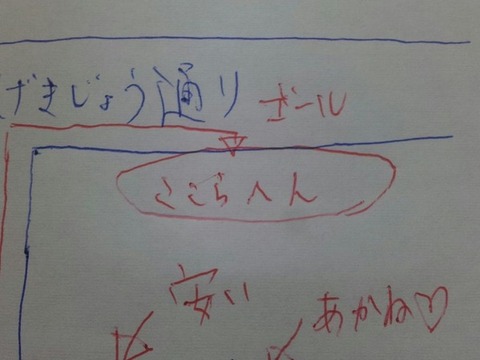 げきじょう通り
ゴール
ここらへん
安い
あかね♡